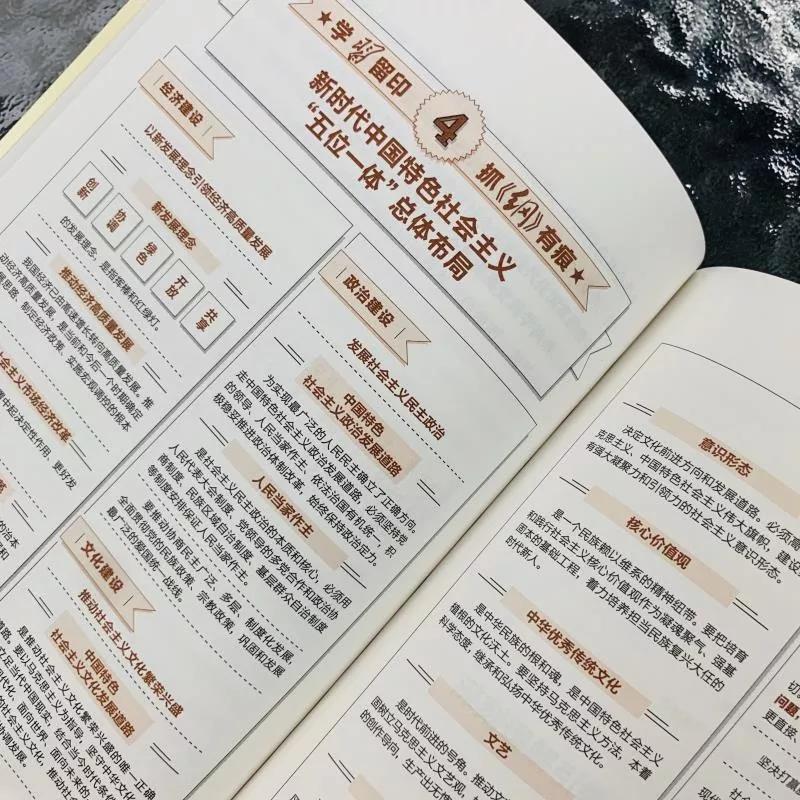 学习留印
4
抓《纲》有痕
新时代中国特色社会主义
“五位一体”总体布局
经济建设
以新发展理念引领经济高质量发展
新发展理念
创新
协调
绿色
开放
共享
的发展理念，是指挥棒和红绿灯。
推动经济高质量发展
我国经济已由高速增长转向高质量发展。推
动经济高质量发展，是当前和今后一个时期确定
展思路、制定经济政策、实施宏观调控的根本
社会主义市场经济改革
置中起决定性作用，更好发
政治建设
发展社会主义民主政治
中国特色
社会主义政治发展道路
为实现最广泛的人民民主确立了正确方向。
走中国特色社会主义政治发展道路，必须坚持党
的领导、人民当家作主、依法治国有机统一，积
极稳妥推进政治体制改革，始终保持政治定力。
人民当家作主
是社会主义民主政治的本质和核心，必须用
人民代表大会制度、党领导的多党合作和政治协
商制度、民族区域自治制度、基层群众自治制度
等制度安排保证人民当家作主。
要推动协商民主广泛、多层、制度化发展，
全面贯彻党的民族政策、宗教政策，巩固和发展
最广泛的爱国统一战线。
文化建设
推动社会主义文化繁荣兴盛
中国特色
社会主义文化发展道路
是推动社会主义文化繁荣兴盛的唯一正确
道路。要以马克思主义为指导，坚守中华文化
立足当代中国现实，结合当今时代条件
代化、面向世界、面向未来的
的社会主义文化，推动社会
协调发展。
意识形态
决定文化前进方向和发展道路。必须高
克思主义、中国特色社会主义伟大旗帜，建设
有强大凝聚力和引领力的社会主义意识形态。
核心价值观
是一个民族赖以维系的精神纽带。要把培育
和践行社会主义核心价值观作为凝魂聚气、强基
固本的基础工程，着力培养担当民族复兴大任的
时代新人。
中华优秀传统文化
是中华民族的根和魂，是中国特色社会主义
植根的文化沃土。要坚持马克思主义方法，本着
科学态度，继承和弘扬中华优秀传统文化。
文艺
是时代前进的号角。推动文
固树立马克思主义文艺观，
的创作导向，生产出无愧
切
问题，
更直接、
坚决打赢
现代